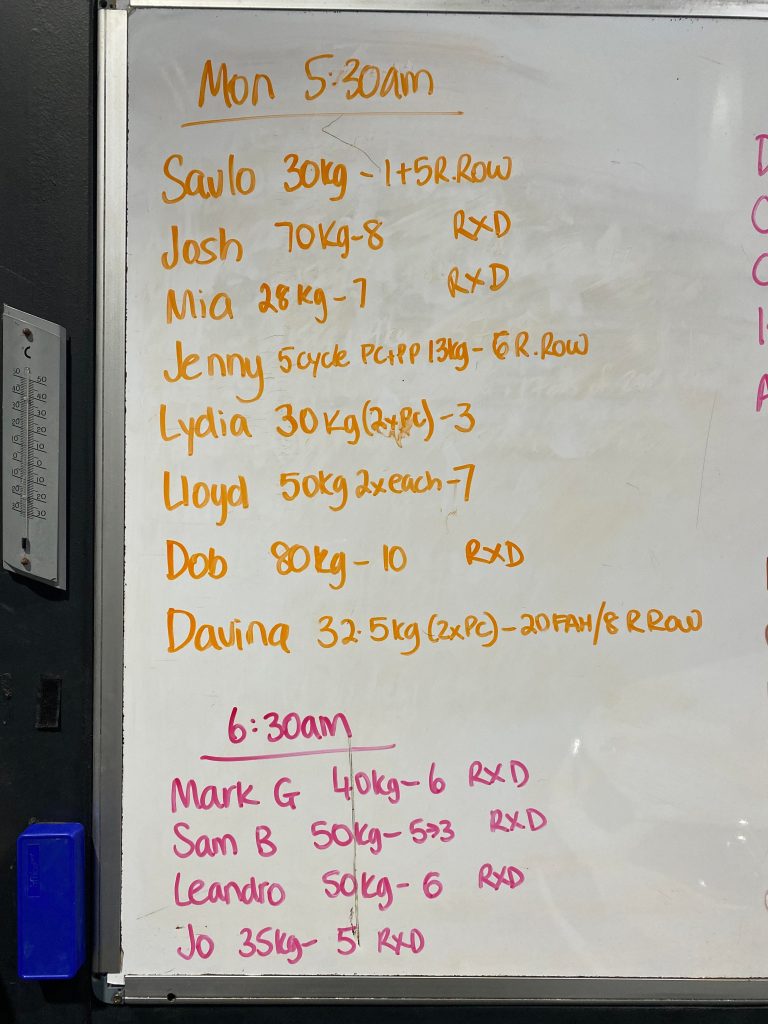 Mon 5:30am
Saulo 30kg - 1+5R.ROW
Josh 70kg-8 RXD
Mia 28kg-7 RXD
Jenny 5cycle PC+PP 13kg- 6 R.ROW
Lydia 30kg (2xPC) -3
Lloyd 50kg 2xeach-7
Dob 80kg - 10 RXD
Davina 32.5kg (2xPC) - 20FAH/8 R ROW
6:30am
Mark G 40kg- 6 RXD
Sam B 50kg- 5→3 RXD
Leandro 50kg- 6 RXD
Jo 35kg- 5 RXD